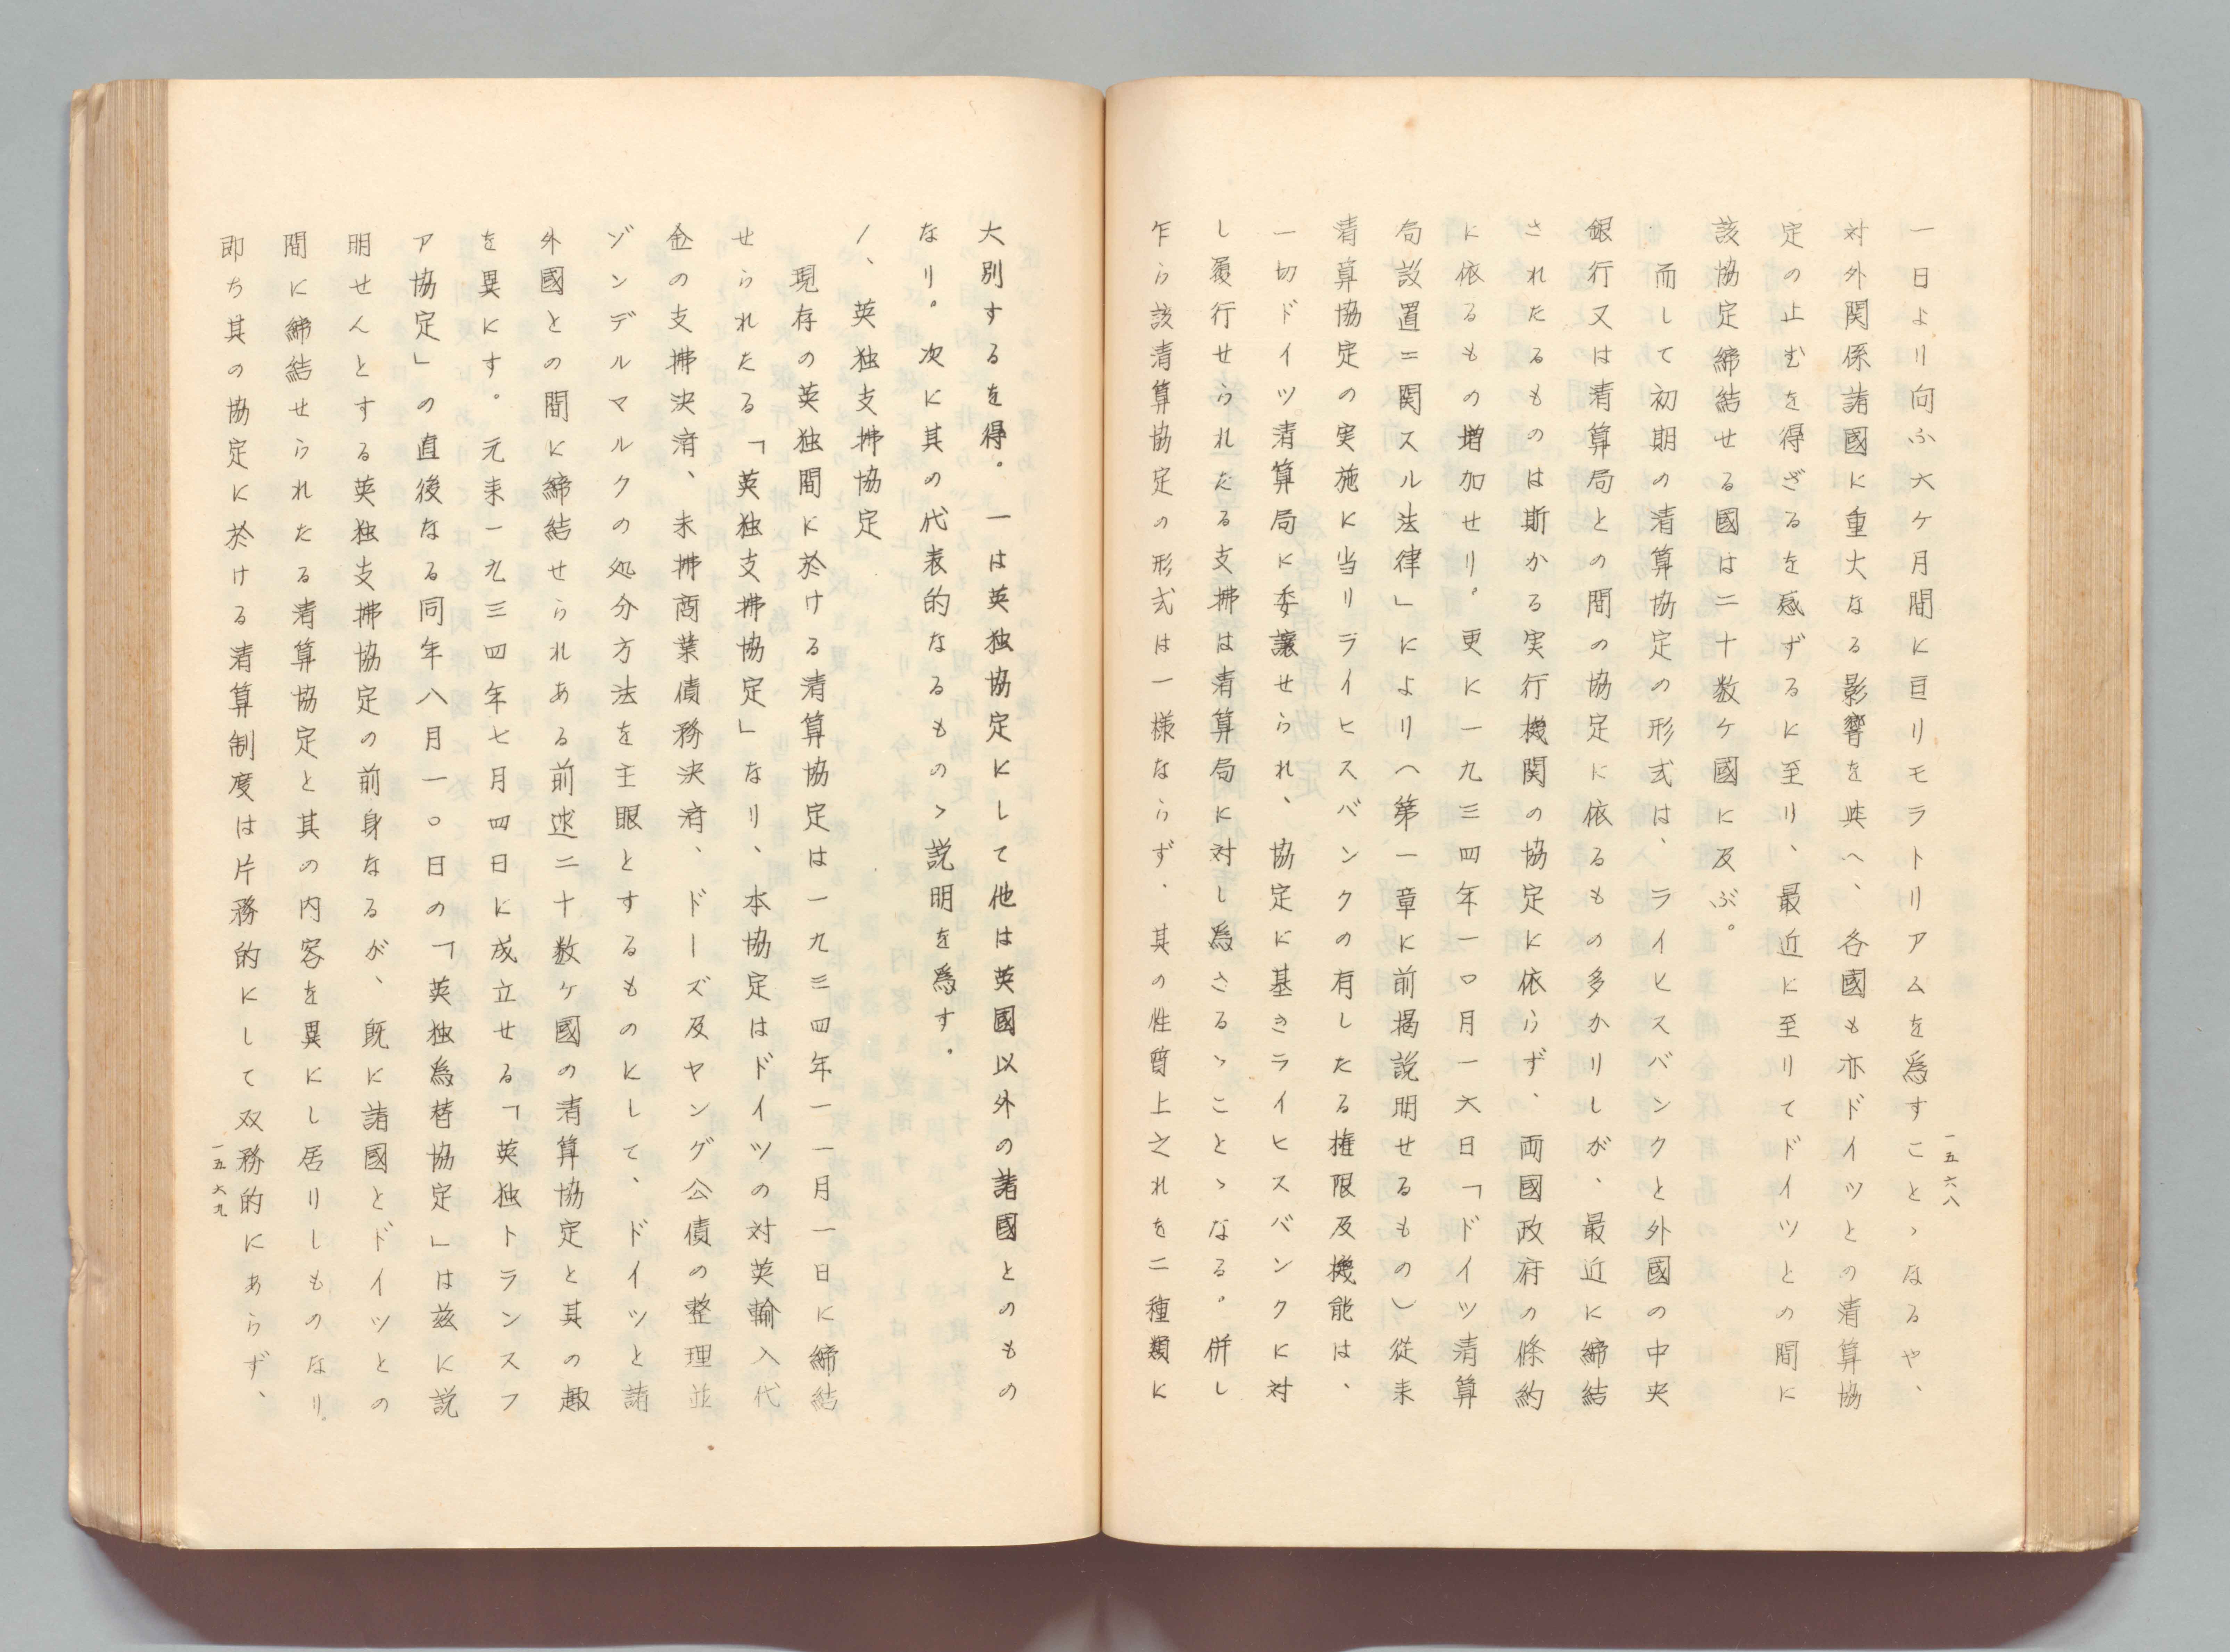 一日より向ふ六ケ月間に亘リモラトリアムを爲すことゝなるや、
対外関係諸國に重大なる影響を與へ、各國も亦ドイツとの清算協
定の止むを得ざるを感ずるに至り、最近に至りてドイツとの間に
該協定締結せる國は二十数ケ國に及ぶ。
而して初期の清算協定の形式は、ライヒスバンクと外國の中央
銀行又は清算局との間の協定に依るもの多かりしが、最近に締結
されたるものは斯かる実行機関の協定に依らず、両國政府の條約
に依るもの増加せり。更に一九三四年一〇月一六日「ドイツ清算
局設置ニ関スル法律」により(第一章に前掲説明せるもの)従来
清算協定の実施に当りライヒスバンクの有したる権限及機能は、
一切ドイツ清算局に委譲せられ、協定に基きライヒスバンクに対
し履行せられたる支拂は清算局に対し爲さるゝことゝなる。併し
乍ら該清算協定の形式は一様ならず、其の性質上之れを二種類に
一五六八
大別するを得。一は英独協定にして他は英國以外の諸國とのもの
なり。次に其の代表的なるものゝ説明を爲す。
1、英独支拂協定
現存の英独間に於ける清算協定は一九三四年一一月一日に締結
せられたる「英独支拂協定」なり、本協定はドイツの対英輸入代
金の支拂決済、未拂商業債務決済、ドーズ及ヤング公債の整理並
ゾンデルマルクの処分方法を主眼とするものにして、ドイツと諸
外國との間に締結せられある前述二十数ケ國の清算協定と其の趣
を異にす。元来一九三四年七月四日に成立せる「英独トランスフ
ア協定」の直後なる同年八月一〇日の「英独爲替協定」は茲に説
明せんとする英独支拂協定の前身なるが、既に諸國とドイツとの
間に締結せられたる清算協定と其の内容を異にし居りしものなり。
即ち其の協定に於ける清算制度は片務的にして双務的にあらず、
一五六九